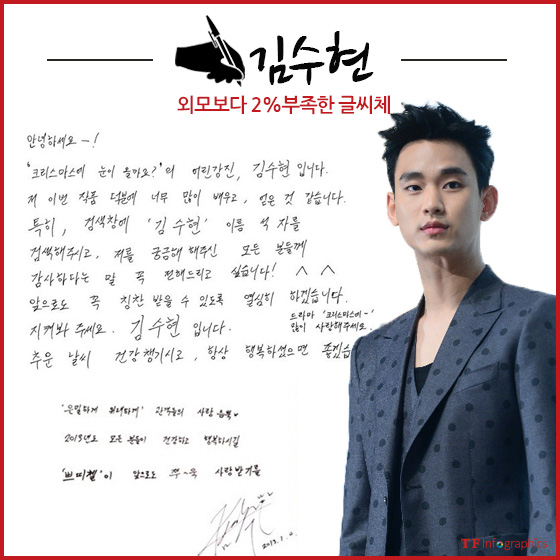 김수현
외모보다 2%부족한 글씨체
안녕하세요-!
'크리스마스에 눈이 올까요?'의 어린강진, 김수현 입니다.
저 이번 작품 덕분에 너무 많이 배우고, 얻은 것 같습니다.
특히, 검색창에 '김수현' 이름 석 자를
검색해주시고, 저를 궁금해 해주신 모든 분들께
감사하다는 말 꼭 전해드리고 싶습니다! ^ ^
앞으로도 꼭 칭찬 받을 수 있도록 열심히 하겠습니다.
지켜봐 주세요. 김수현 입니다.
드라마 '크리스마스에~'
많이 사랑해주세요.
추운 날씨 건강챙기시고, 항상 행복하셨으면 좋겠습
'은밀하게 위대하게' 관객들의 사랑 듬뿍♥
2013년도 모든 분들이 건강하고 행복하시길
'쁘띠첼'이 앞으로도 쭈~욱 사랑받기를
2013. 1. 0.
TF Infographic